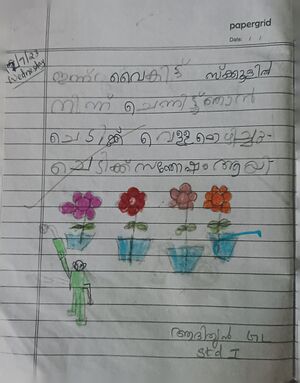 papergrid
Date: / /
5/7/23
Wednesday
ഇന്ന് വൈകിട്ട് സ്ക്കൂളിൽ
നിന്ന് ചെന്നിട്ട് ഞാൻ
ചെടിക്ക് വെള്ളമൊഴിച്ചു
ചെടിക്ക് സന്തോഷം ആയി
ആദിത്യൻ GL
Std I